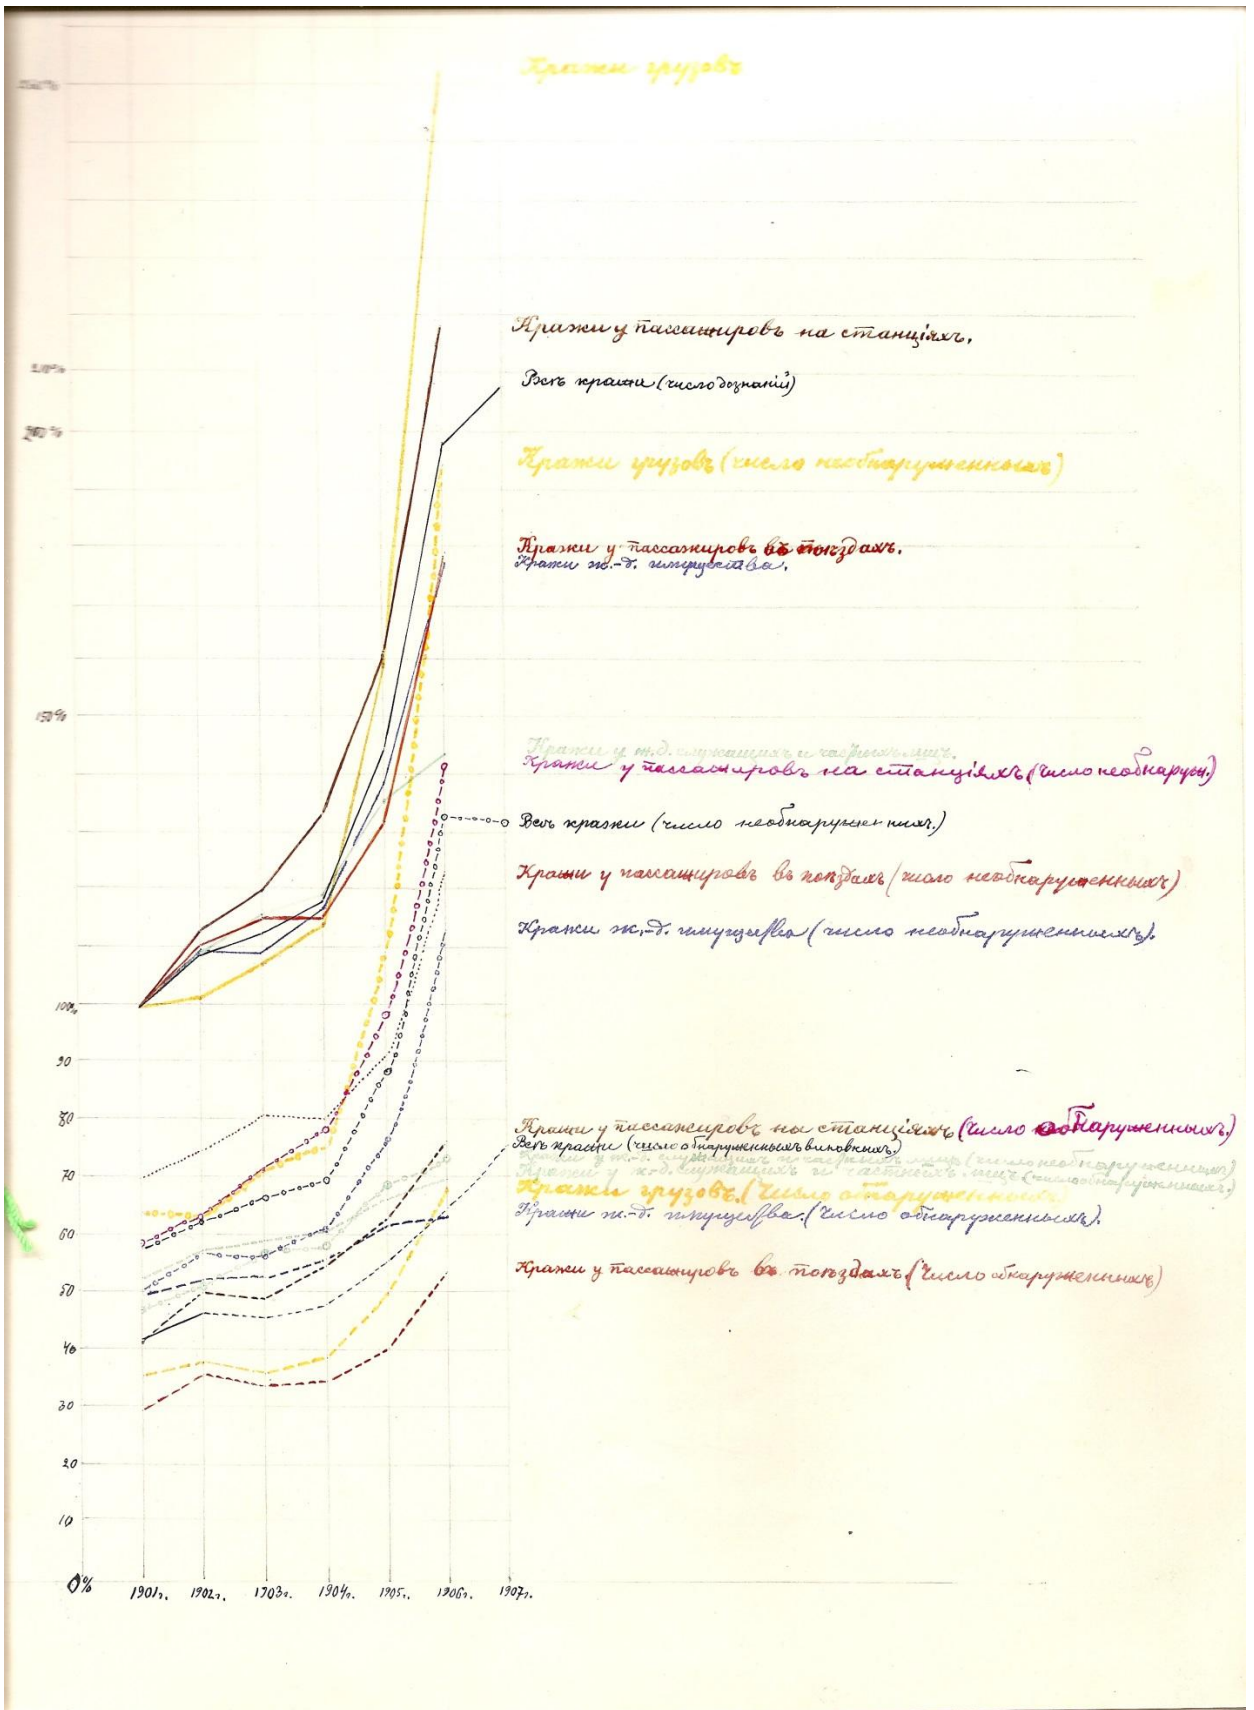 Кражи грузовъ
210%
Кражи у пассажировъ на станціяхъ.
Всѣ кражи (число дознаній)
200%
Кражи грузовъ (число необнаруженныхъ)
Кражи у пассажировъ въ поѣздахъ.
Кражи ж.-д. имущества.
150%
Кражи у ж.д. служащихъ и частныхъ лицъ.
Кражи у пассажировъ на станціяхъ (число необнаруж.)
Всѣ кражи (число необнаруженныхъ.)
Кражи у пассажировъ въ поѣздахъ (число необнаруженныхъ)
Кражи ж.-д. имущества (число необнаруженныхъ).
100%
90
80
Кражи у пассажировъ на станціяхъ (число обнаруженныхъ.)
Всѣ кражи (число обнаруженныхъ виновныхъ.)
Кражи у ж.-д. служащихъ и частныхъ лицъ (число необнаруженныхъ)
70
Кражи у ж-д. служащихъ и частныхъ лицъ (число обнаруженныхъ.)
Кражи грузовъ. (число обнаруженныхъ)
Кражи ж.-д. имущества. (число обнаруженныхъ).
60
Кражи у пассажировъ въ поѣздахъ. (число обнаруженныхъ)
50
40
30
20
10
0%
1901г. 1902г. 1903г. 1904г. 1905г. 1906г. 1907г.